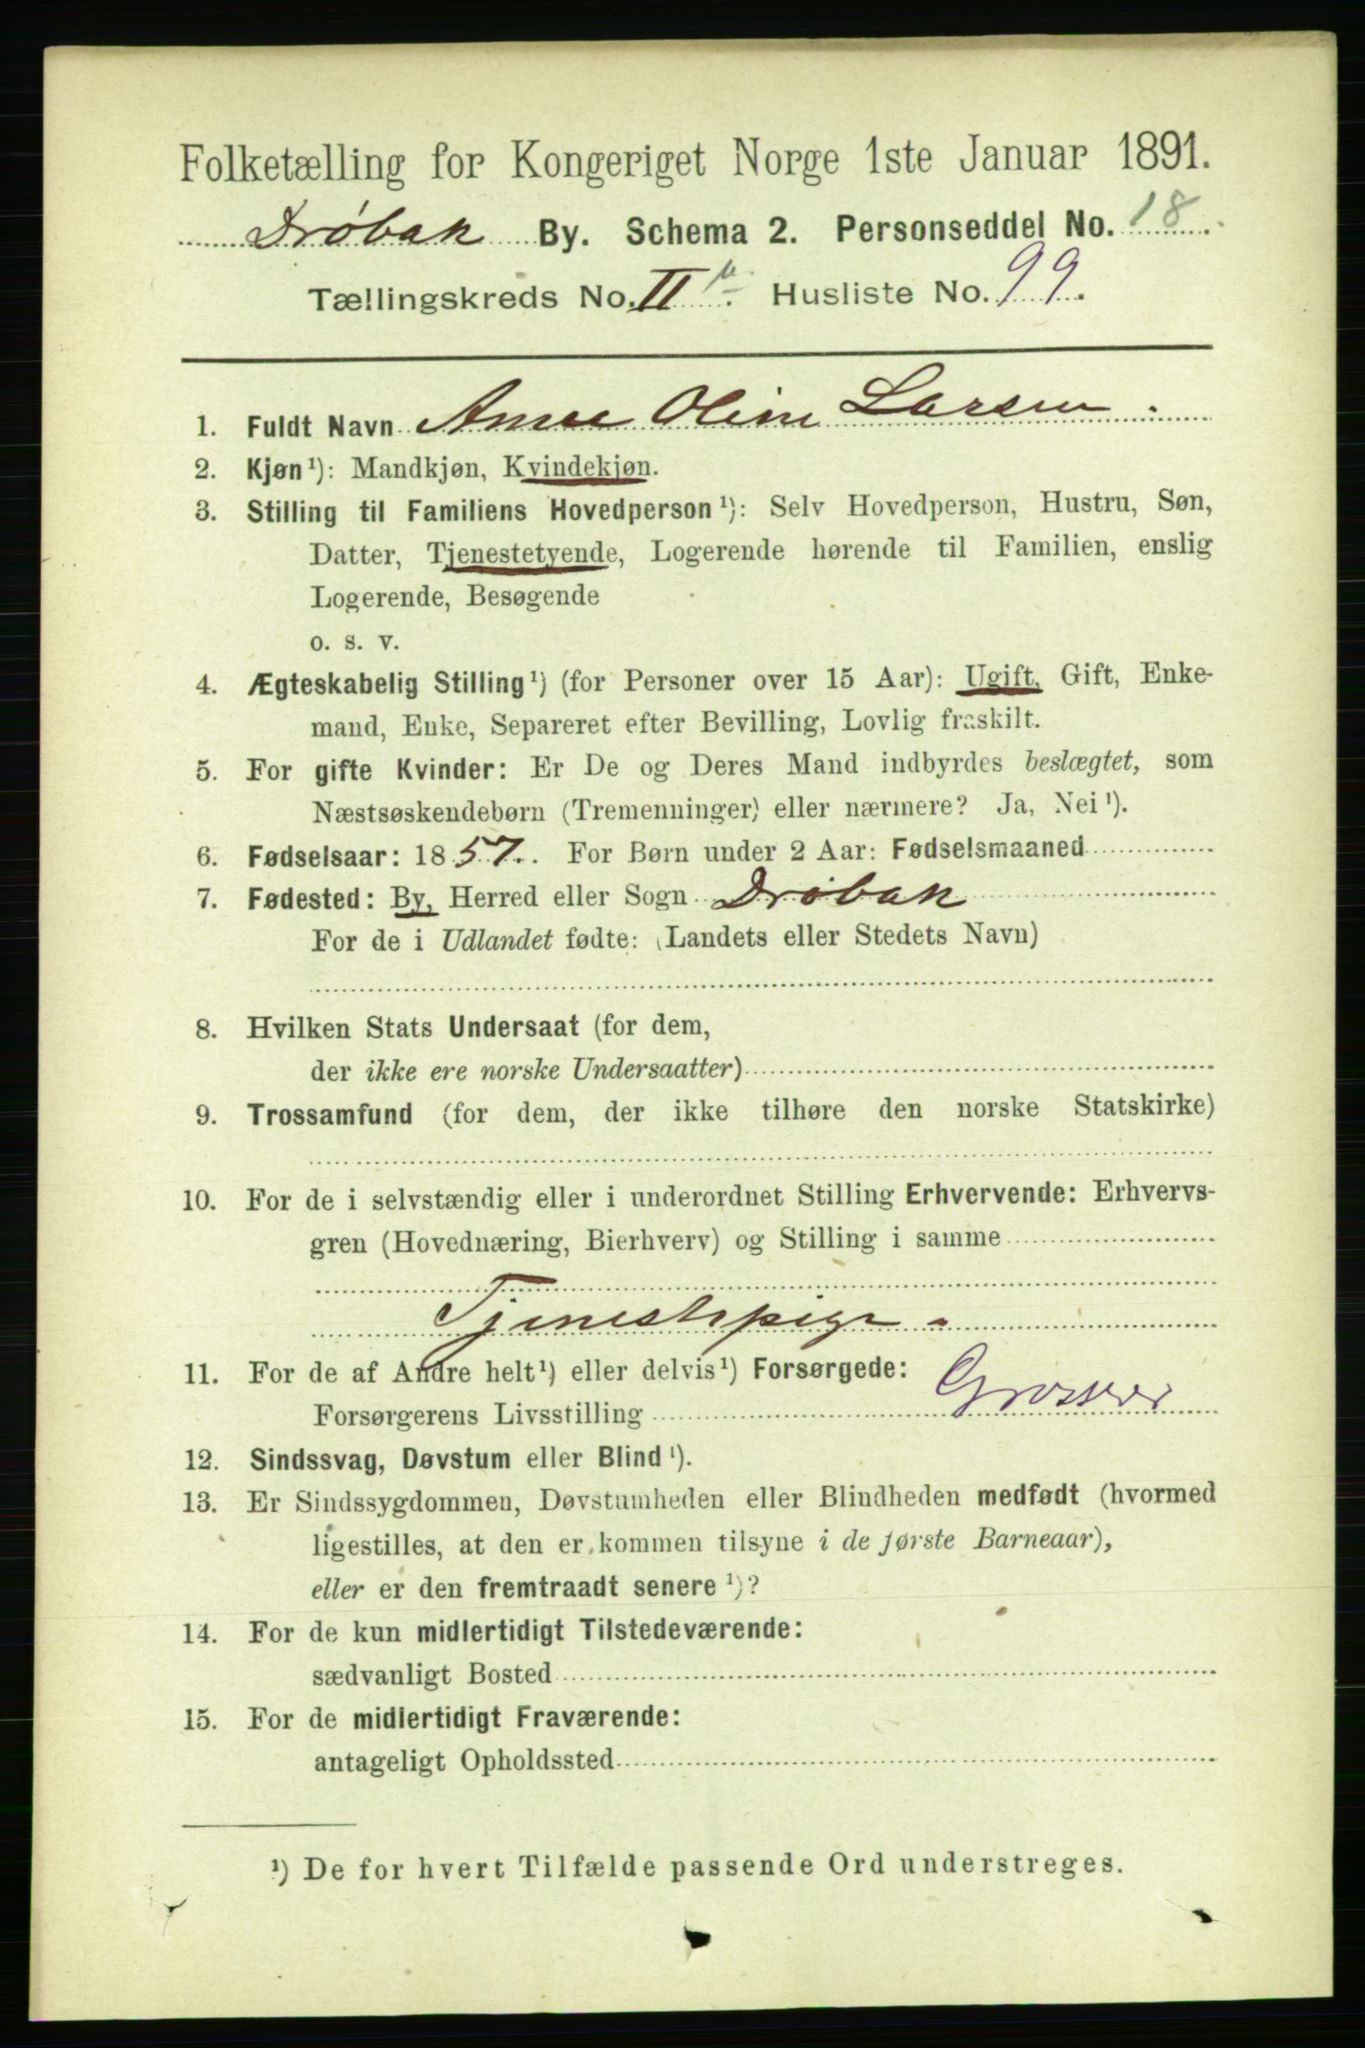 Folketælling for Kongeriget Norge 1ste Januar 1891.
Drøbak By. Schema 2. Personseddel No. 18.
Tællingskreds No. II b. Husliste No. 99.
1. Fuldt Navn Anne Oline Larsen.
2. Kjøn¹): Mandkjøn, Kvindekjøn.
3. Stilling til Familiens Hovedperson¹): Selv Hovedperson, Hustru, Søn,
Datter, Tjenestetyende, Logerende hørende til Familien, enslig
Logerende, Besøgende
o. s. v.
4. Ægteskabelig Stilling¹) (for Personer over 15 Aar): Ugift, Gift, Enke-
mand, Enke, Separeret efter Bevilling, Lovlig fraskilt.
5. For gifte Kvinder: Er De og Deres Mand indbyrdes beslægtet, som
Næstsøskendebørn (Tremenninger) eller nærmere? Ja, Nei¹).
6. Fødselsaar: 1857. For Børn under 2 Aar: Fødselsmaaned
7. Fødested: By, Herred eller Sogn Drøbak
For de i Udlandet fødte: (Landets eller Stedets Navn)
8. Hvilken Stats Undersaat (for dem,
der ikke ere norske Undersaatter)
9. Trossamfund (for dem, der ikke tilhøre den norske Statskirke)
10. For de i selvstændig eller i underordnet Stilling Erhvervende: Erhvervs-
gren (Hovednæring, Bierhverv) og Stilling i samme
Tjenestepige.
11. For de af Andre helt¹) eller delvis¹) Forsørgede:
Forsørgerens Livsstilling
12. Sindssvag, Døvstum eller Blind¹).
13. Er Sindssygdommen, Døvstumheden eller Blindheden medfødt (hvormed
ligestilles, at den er kommen tilsyne i de første Barneaar),
eller er den fremtraadt senere¹)?
14. For de kun midlertidigt Tilstedeværende:
sædvanligt Bosted
15. For de midlertidigt Fraværende:
antageligt Opholdssted
¹) De for hvert Tilfælde passende Ord understreges.